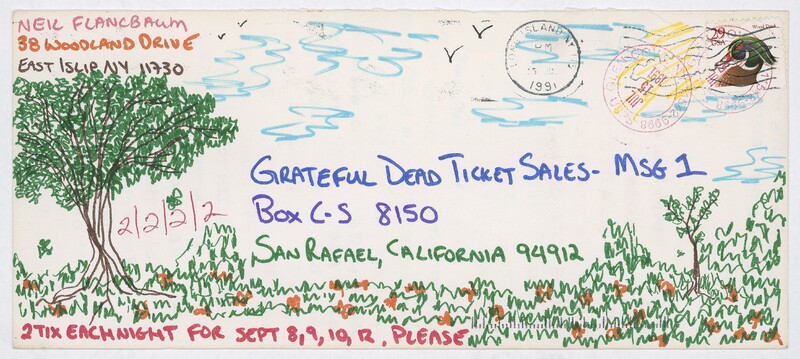 NEIL FLANCBAUM
38 WOODLAND DRIVE
EAST ISLIP NY 11730
LONG ISLAND NY
PM
1991
JUL
1991
29
USA
Wood Duck
GRATEFUL DEAD TICKET SALES- MSG 1
BOX C-S 8150
SAN RAFAEL, CALIFORNIA 94912
2/2/2/2
2TIX EACH NIGHT FOR SEPT 8, 9, 10, 12, PLEASE